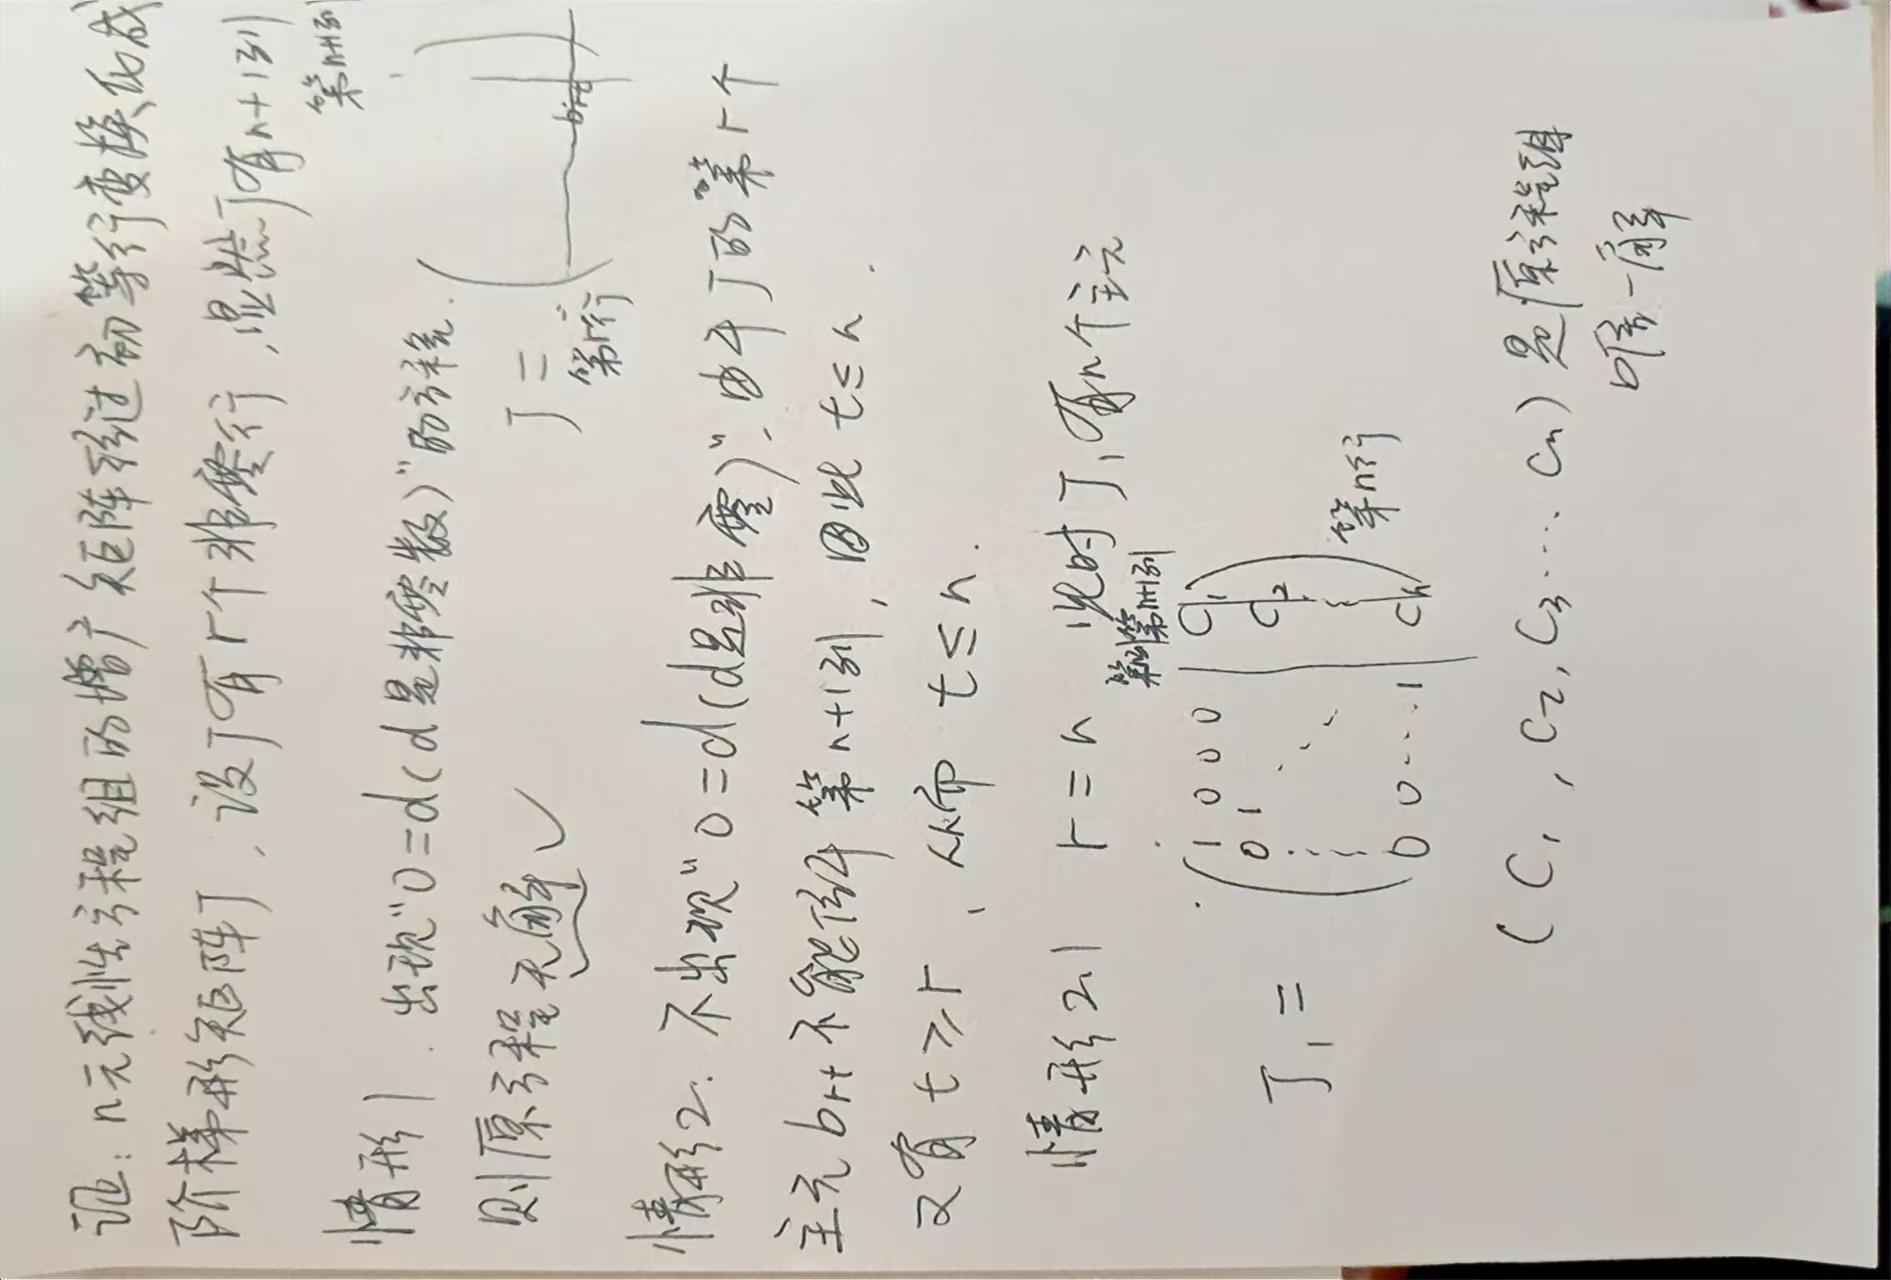 证：n元线性方程组的增广矩阵经过初等行变换化成
阶梯形矩阵J，设J有r个非零行，显然J有n+1列
情形1. 出现“0=d(d是非零数)”的方程.
第n+1列
则原方程无解 ✓
J = ( brt )
第r行
情形2. 不出现“0=d(d是非零)”，由于J的第r个
主元brt不能位于第n+1列，因此 t≤n.
又有 t⩾r，从而 t≤n.
情形2.1 r=n 此时J₁有n个主元
第n列 第n+1列
J₁ = ( 1 0 0 0 | C₁
0 1 ⋱ | C₂
⋮ ⋮ | ⋮
0 0 … 1 | Cn ) 第n行
(C₁, C₂, C₃ … Cn) 是原方程组
的唯一解